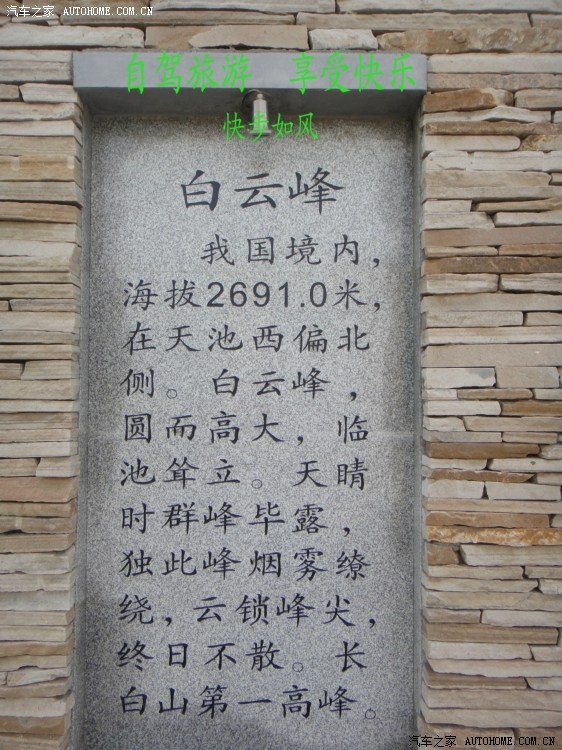 汽车之家 AUTOHOME.COM.CN
自驾旅游 享受快乐
快步如风
白云峰
我国境内，
海拔2691.0米，
在天池西偏北
侧。白云峰，
圆而高大，临
池耸立。天晴
时群峰毕露，
独此峰烟雾缭
绕，云锁峰尖，
终日不散。长
白山第一高峰。
汽车之家 AUTOHOME.COM.CN